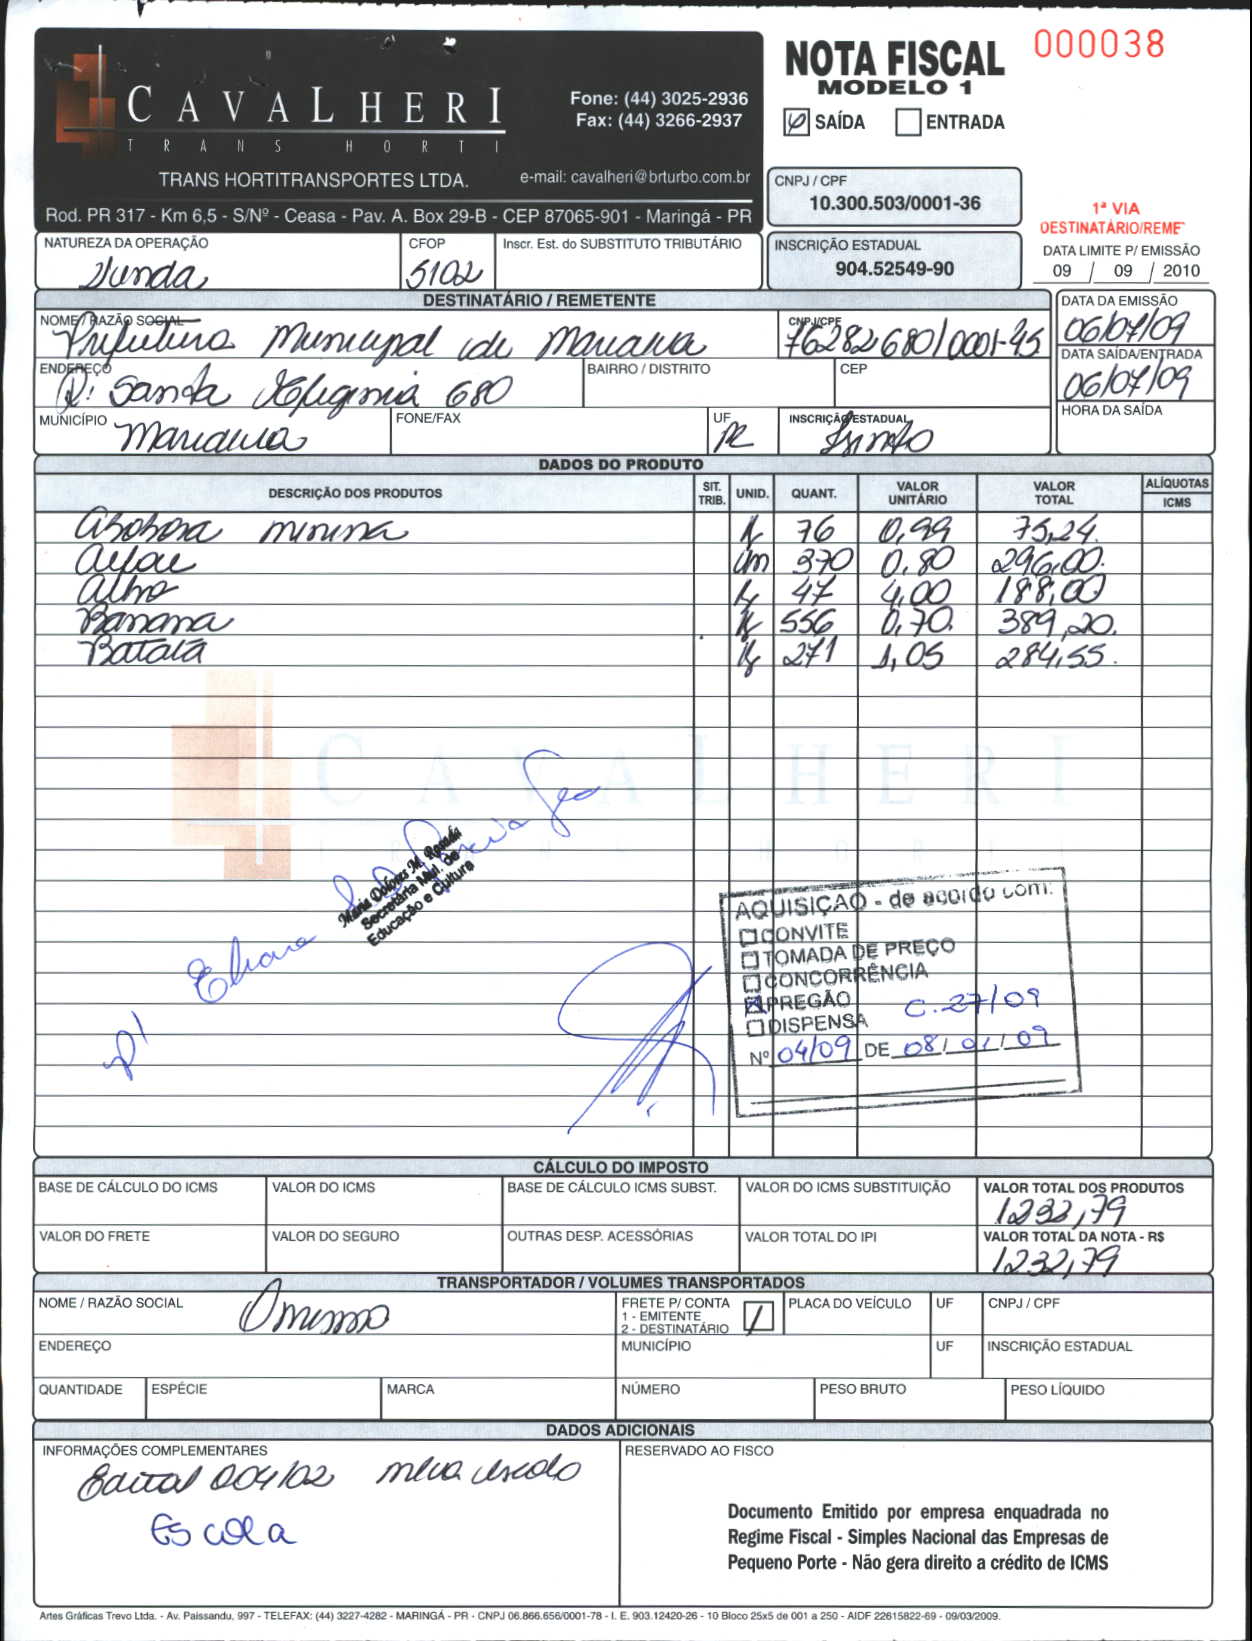 NOTA FISCAL
MODELO 1
000038
CAVALHERI
TRANS HORTI
Fone: (44) 3025-2936
Fax: (44) 3266-2937
TRANS HORTITRANSPORTES LTDA.
e-mail: cavalheri@brturbo.com.br
Rod. PR 317 - Km 6,5 - S/Nº - Ceasa - Pav. A. Box 29-B - CEP 87065-901 - Maringá - PR
SAÍDA ENTRADA
CNPJ / CPF
10.300.503/0001-36
INSCRIÇÃO ESTADUAL
904.52549-90
1ª VIA
DESTINATÁRIO/REME
DATA LIMITE P/ EMISSÃO
09 / 09 / 2010
NATUREZA DA OPERAÇÃO
Venda
CFOP
5102
Inscr. Est. do SUBSTITUTO TRIBUTÁRIO
DESTINATÁRIO / REMETENTE
NOME / RAZÃO SOCIAL
Prefeitura Municipal de Marialva
CNPJ/CPF
76282680/0001-45
DATA DA EMISSÃO
06/07/09
ENDEREÇO
R: Santa Efigenia 680
BAIRRO / DISTRITO
CEP
DATA SAÍDA/ENTRADA
06/07/09
MUNICÍPIO
Marialva
FONE/FAX
UF
PR
INSCRIÇÃO ESTADUAL
Isento
HORA DA SAÍDA
DADOS DO PRODUTO
DESCRIÇÃO DOS PRODUTOS SIT. TRIB. UNID. QUANT. VALOR UNITÁRIO VALOR TOTAL ALÍQUOTAS ICMS
Abobora menina K 76 0,99 75,24
Alface Un 370 0,80 296,00
Alho K 47 4,00 188,00
Banana K 556 0,70 389,20
Batata K 271 1,05 284,55
CAVALHERI
TRANS HORTI
p/ Eliane
Maria Dolores M.
Secretária Mul. de
Educação e Cultura
AQUISIÇÃO - de acordo com:
CONVITE
TOMADA DE PREÇO
CONCORRÊNCIA
PREGÃO C. 27/09
DISPENSA
Nº 04/09 DE 08/01/09
CÁLCULO DO IMPOSTO
BASE DE CÁLCULO DO ICMS
VALOR DO ICMS
BASE DE CÁLCULO ICMS SUBST.
VALOR DO ICMS SUBSTITUIÇÃO
VALOR TOTAL DOS PRODUTOS
1232,79
VALOR DO FRETE
VALOR DO SEGURO
OUTRAS DESP. ACESSÓRIAS
VALOR TOTAL DO IPI
VALOR TOTAL DA NOTA - R$
1232,79
TRANSPORTADOR / VOLUMES TRANSPORTADOS
NOME / RAZÃO SOCIAL
O mesmo
FRETE P/ CONTA
1 - EMITENTE
2 - DESTINATÁRIO
1
PLACA DO VEÍCULO
UF
CNPJ / CPF
ENDEREÇO
MUNICÍPIO
UF
INSCRIÇÃO ESTADUAL
QUANTIDADE
ESPÉCIE
MARCA
NÚMERO
PESO BRUTO
PESO LÍQUIDO
DADOS ADICIONAIS
INFORMAÇÕES COMPLEMENTARES
Edital 004/02
Escola
RESERVADO AO FISCO
Documento Emitido por empresa enquadrada no
Regime Fiscal - Simples Nacional das Empresas de
Pequeno Porte - Não gera direito a crédito de ICMS
Artes Gráficas Trevo Ltda. - Av. Paissandu, 997 - TELEFAX: (44) 3227-4282 - MARINGÁ - PR - CNPJ 06.866.656/0001-78 - I. E. 903.12420-26 - 10 Bloco 25x5 de 001 a 250 - AIDF 22615822-69 - 09/03/2009.